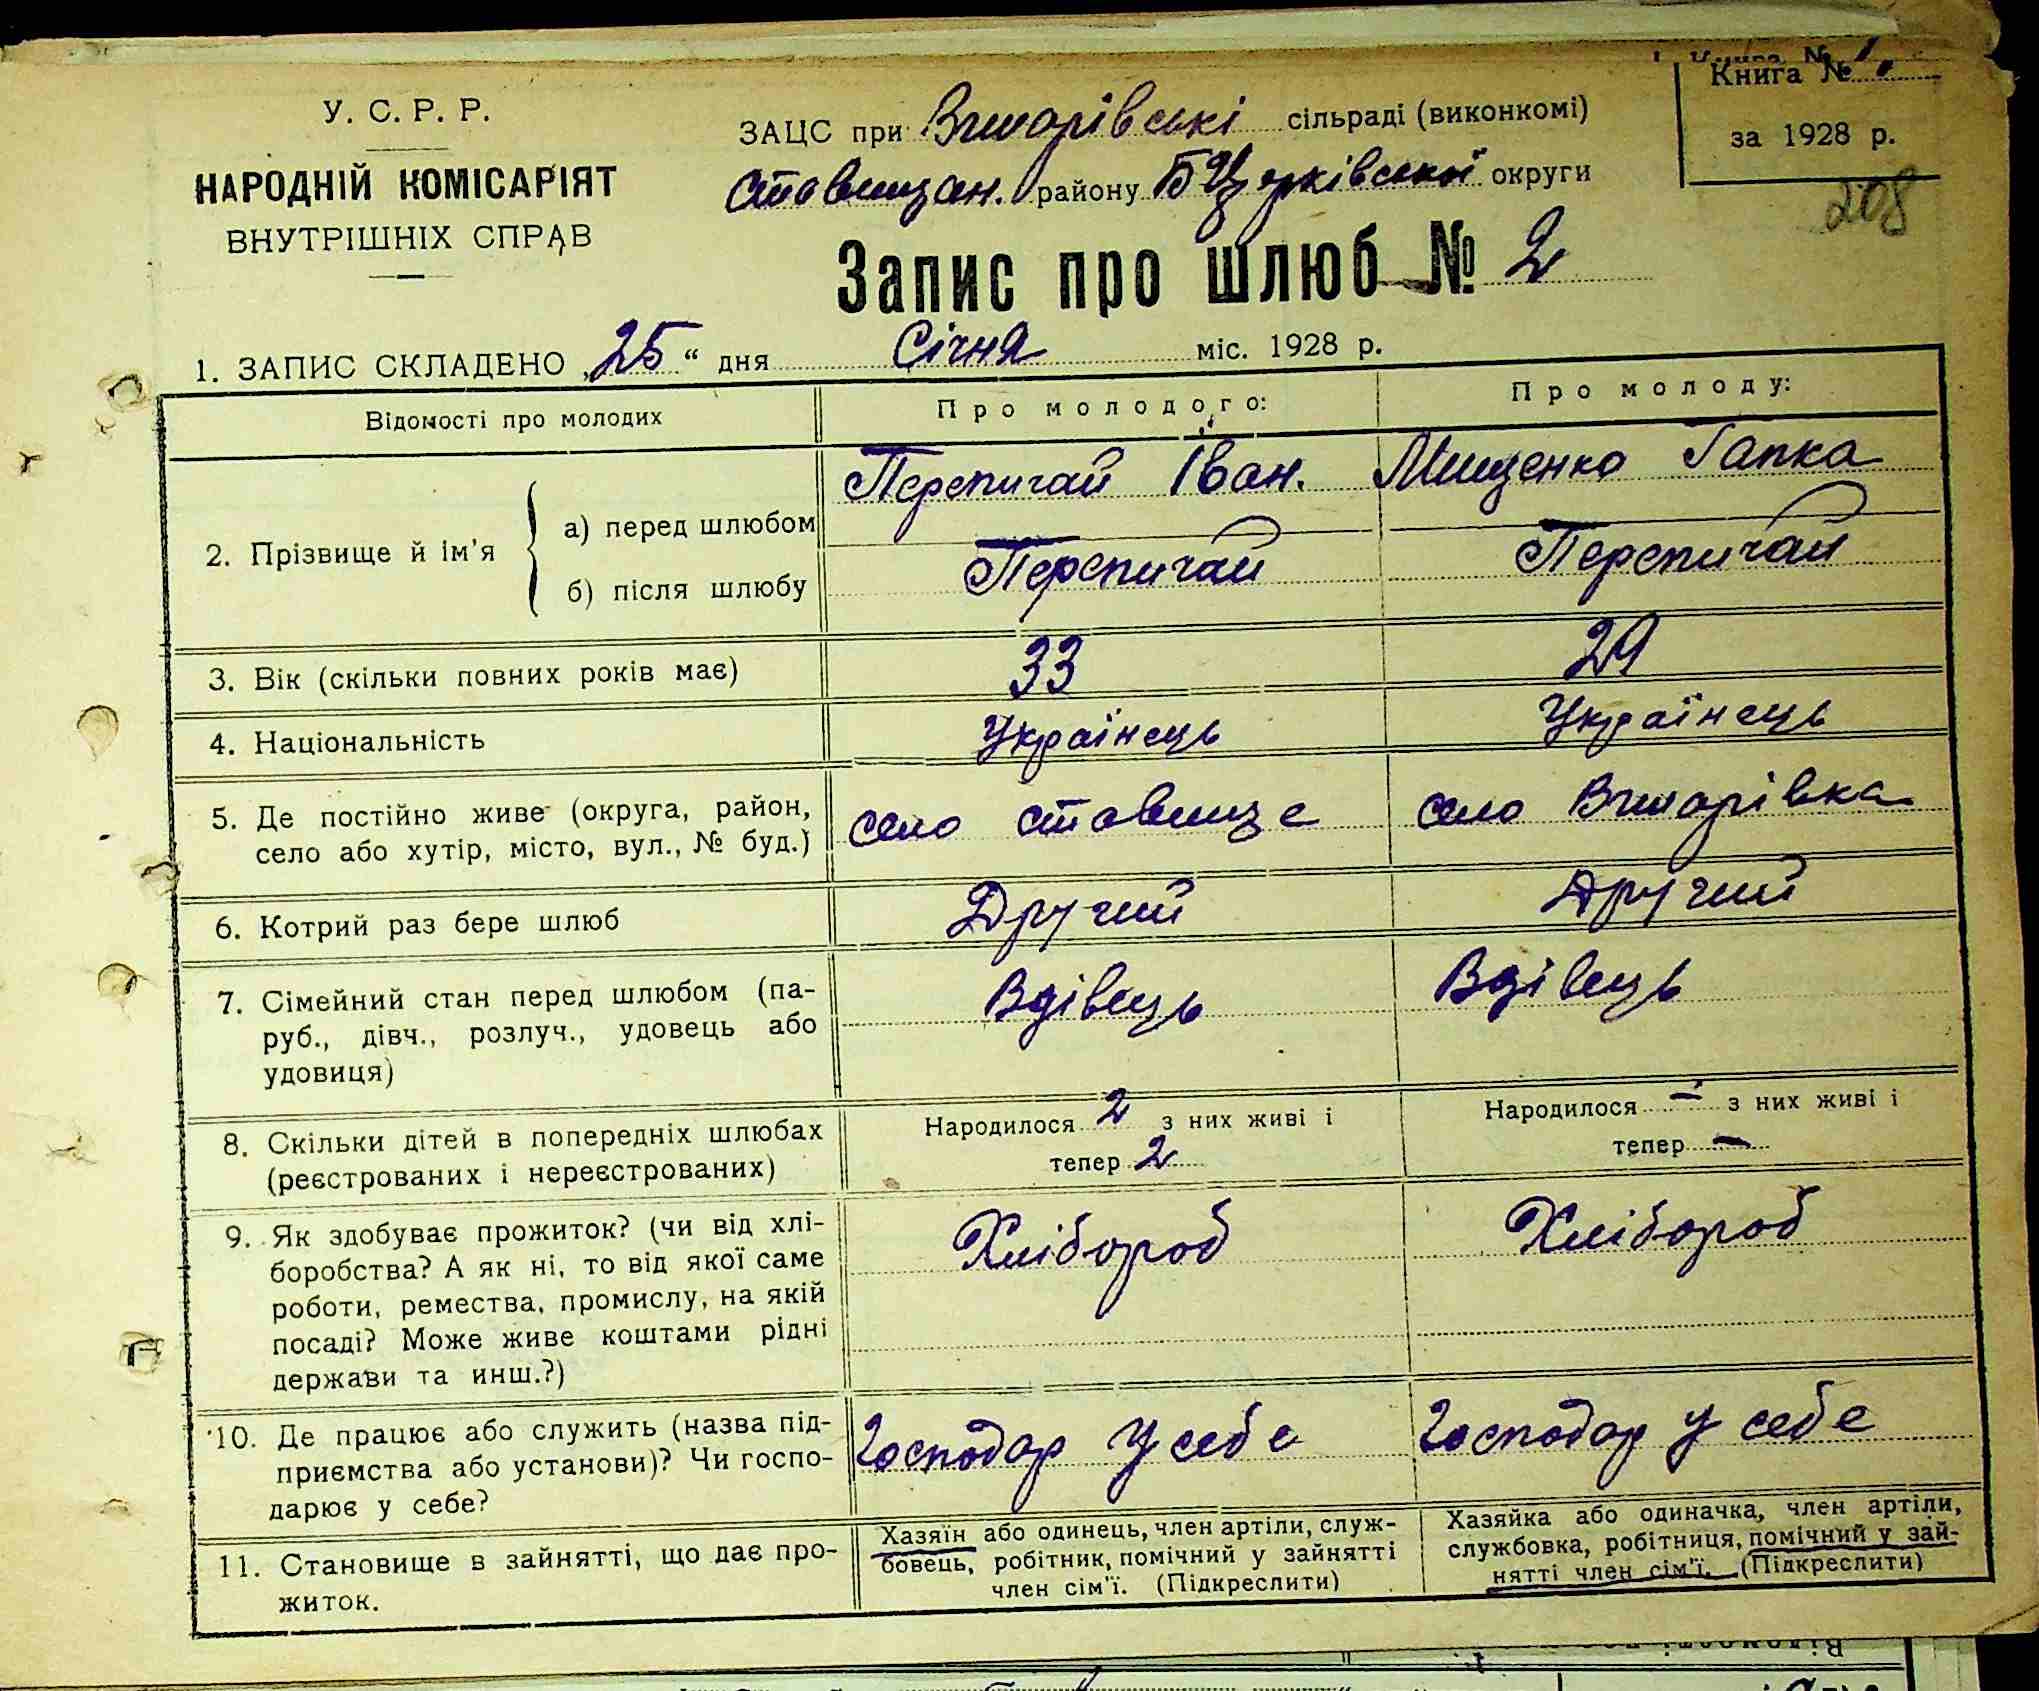 Книга № 1.
за 1928 р.
208
У. С. Р. Р.
НАРОДНІЙ КОМІСАРІЯТ
ВНУТРІШНІХ СПРАВ
ЗАЦС при Вишарівські сільраді (виконкомі)
Ставищан. району БЦерківської округи
Запис про шлюб № 2
1. ЗАПИС СКЛАДЕНО „25“ дня Січня міс. 1928 р.
Відомості про молодих
Про молодого:
Про молоду:
2. Прізвище й ім'я
а) перед шлюбом
Перепичай Іван.
Мищенко Гапка
б) після шлюбу
Перепичай
Перепичай
3. Вік (скільки повних років має)
33
29
4. Національність
Українець
Українець
5. Де постійно живе (округа, район,
село або хутір, місто, вул., № буд.)
село Ставище
село Вишарівка
6. Котрий раз бере шлюб
Другий
Другий
7. Сімейний стан перед шлюбом (па-
руб., дівч., розлуч., удовець або
удовиця)
Вдівець
Вдівець
8. Скільки дітей в попередніх шлюбах
(реєстрованих і нереєстрованих)
Народилося 2 з них живі і
тепер 2
Народилося — з них живі і
тепер —
9. Як здобуває прожиток? (чи від хлі-
боробства? А як ні, то від якої саме
роботи, ремества, промислу, на якій
посаді? Може живе коштами рідні
держави та инш.?)
Хлібороб
Хлібороб
10. Де працює або служить (назва під-
приємства або установи)? Чи госпо-
дарює у себе?
Господар у себе
Господар у себе
11. Становище в зайнятті, що дає про-
житок.
Хазяїн або одинець, член артіли, служ-
бовець, робітник, помічний у зайнятті
член сім'ї. (Підкреслити)
Хазяйка або одиначка, член артіли,
службовка, робітниця, помічний у зай-
нятті член сім'ї. (Підкреслити)